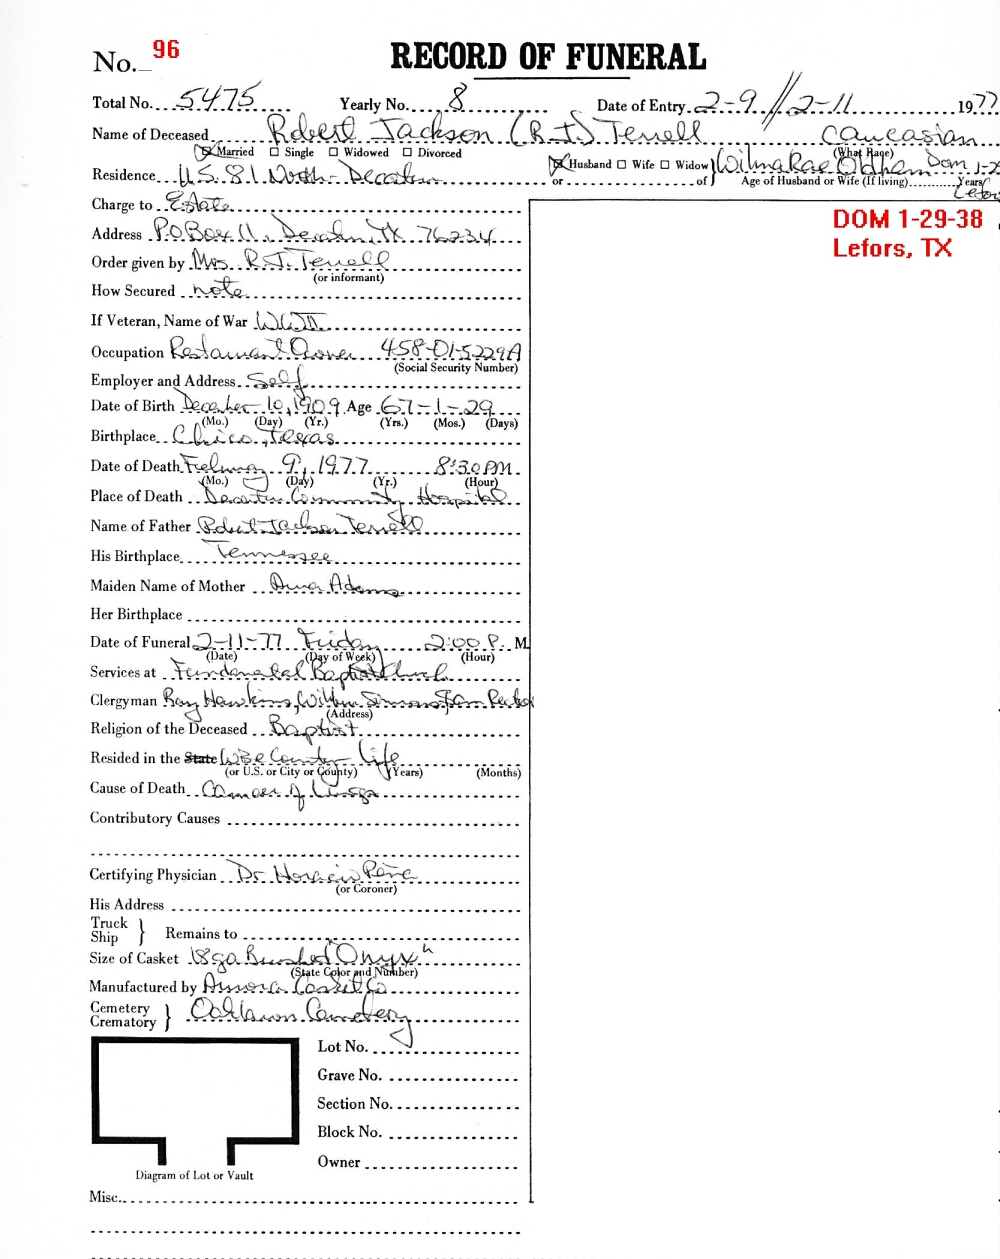 No. 96 RECORD OF FUNERAL
Total No. 5475 Yearly No. 8 Date of Entry 2-9 // 2-11 1977
Name of Deceased Robert Jackson (R.J.) Terrell Caucasian
(What Race)
☒ Married ☐ Single ☐ Widowed ☐ Divorced ☒ Husband ☐ Wife ☐ Widow Wilma Rae Oldham Dom 1-2
Residence U.S. 81 North - Decatur or of Age of Husband or Wife (If living) Years Lefors
Charge to Estate
DOM 1-29-38
Lefors, TX
Address P.O Box 11, Decatur, TX 76234
Order given by Mrs. R.J. Terrell
(or informant)
How Secured note
If Veteran, Name of War WWII
Occupation Restaurant Owner 458-01-5229A
(Social Security Number)
Employer and Address Self
Date of Birth December 10, 1909 Age 67-1-29
(Mo.) (Day) (Yr.) (Yrs.) (Mos.) (Days)
Birthplace Chico, Texas
Date of Death February 9, 1977 8:30 PM
(Mo.) (Day) (Yr.) (Hour)
Place of Death Decatur Community Hospital
Name of Father Robert Jackson Terrell
His Birthplace Tennessee
Maiden Name of Mother Adams
Her Birthplace
Date of Funeral 2-11-77 Friday 2:00 P. M.
(Date) (Day of Week) (Hour)
Services at Fundamental Baptist Church
Clergyman Ray Hawkins, Simmons
(Address)
Religion of the Deceased Baptist
Resided in the State Wise County Life
(or U.S. or City or County) (Years) (Months)
Cause of Death Cancer of Lungs
Contributory Causes
Certifying Physician Dr Horacio Peña
(or Coroner)
His Address
Truck
Ship } Remains to
Size of Casket 18ga Brushed "Onyx"
(State Color and Number)
Manufactured by Aurora Casket Co
Cemetery
Crematory } Oaklawn Cemetery
Lot No.
Grave No.
Section No.
Block No.
Owner
Diagram of Lot or Vault
Misc.